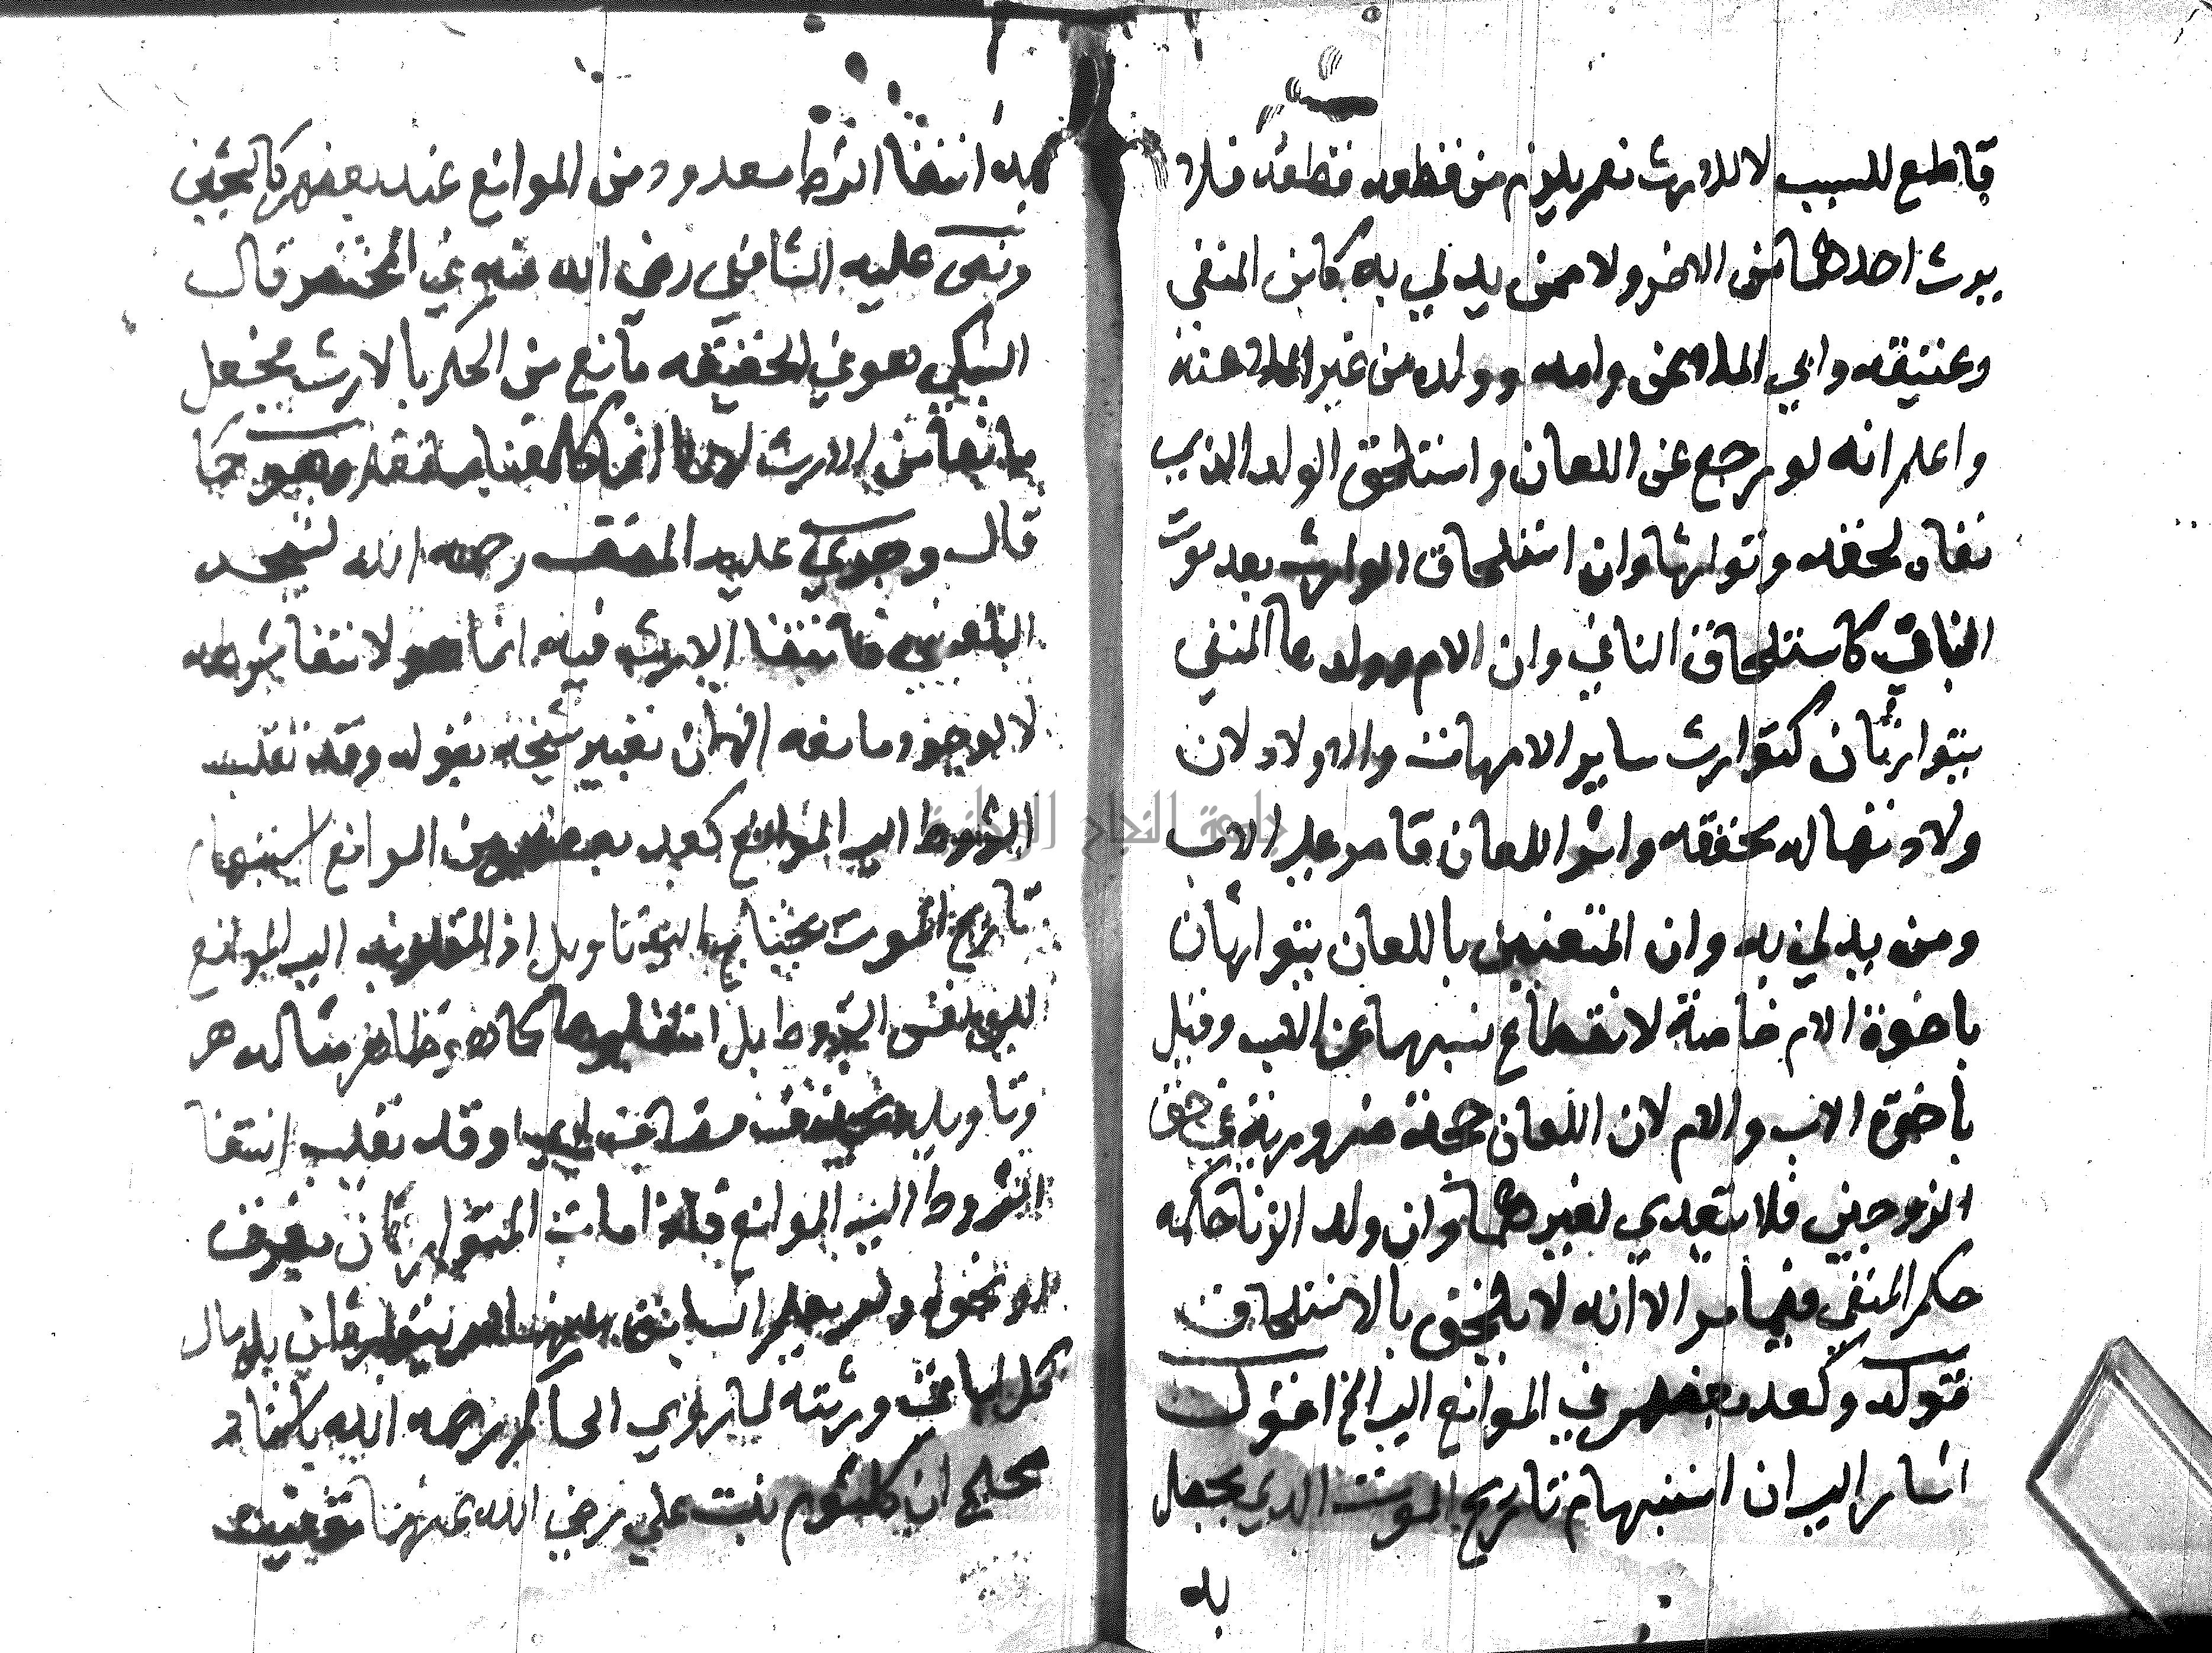 قاطع للسبب لا للارث نعم يلزم من قطعه قطعه فلا
يرث احدهما من الاخر ولا ممن يدلي به كابن المنفي
وعتيقه وابي الملاعن وامه وولده من غير الملاعنة
واعلم انه لو رجع عن اللعان واستلحق الولد الذي
نفاه لحقه وتوارثا وان استلحاق الوارث بعد موت
النافي كاستلحاق النافي وان الام وولدها المنفي
يتوارثان كتوارث ساير الامهات والاولاد لان
ولادتها له محققه واثر اللعان قاصر على الاب
ومن يدلي به وان المنفيين باللعان يتوارثان
باخوة الام خاصة لانقطاع نسبهما عن الاب وقيل
باخوة الاب والام لان اللعان حجة ضرورية في حق
الزوجين فلا يتعدي لغيرهما وان ولد الزنا حكمه
حكم المنفي فيما مر الا انه لا يلحق بالاستلحاق
قوله وكعد بعضهم في الموانع الي الخ اقول
اشار الي ان استبهام تاريخ الموت الذي يجعل
به
به انتفا الشرط معدود من الموانع عند بعضهم كالشيخين
ونص عليه الشافعي رضي الله عنه في المختصر قال
السبكي هو في الحقيقه مانع من الحكم بالارث فجعل
مانعا من الارث لانا انما كلفنا بما نفقه وهو كما
قال وجري عليه المصنف رحمه الله
فانتفا الارث فيه انما هو لانتفا شرطه
لا لوجود مانعه افهم ان تعبير شيخه بقوله وقد تقلب
الشروط الي الموانع كعد بعضهم من الموانع استبهام
تاريخ الموت يحتاج الي تاويل اذ المقلوب الي الموانع
ليس نفس الشروط بل انتفاوها كما هو ظاهر مثاله هو
وتاويله مضاف اي وقد تقلب انتفا
الشروط الي الموانع فاذا مات المتوارثان بغرق
او نحوه ولم يعلم السابق منهما لم يتوارثان بل مال
كل لباقي ورثته لما روي الحاكم رحمه الله باسناد
صحيح ان كلثوم بنت علي رضي الله عنهما توفيت